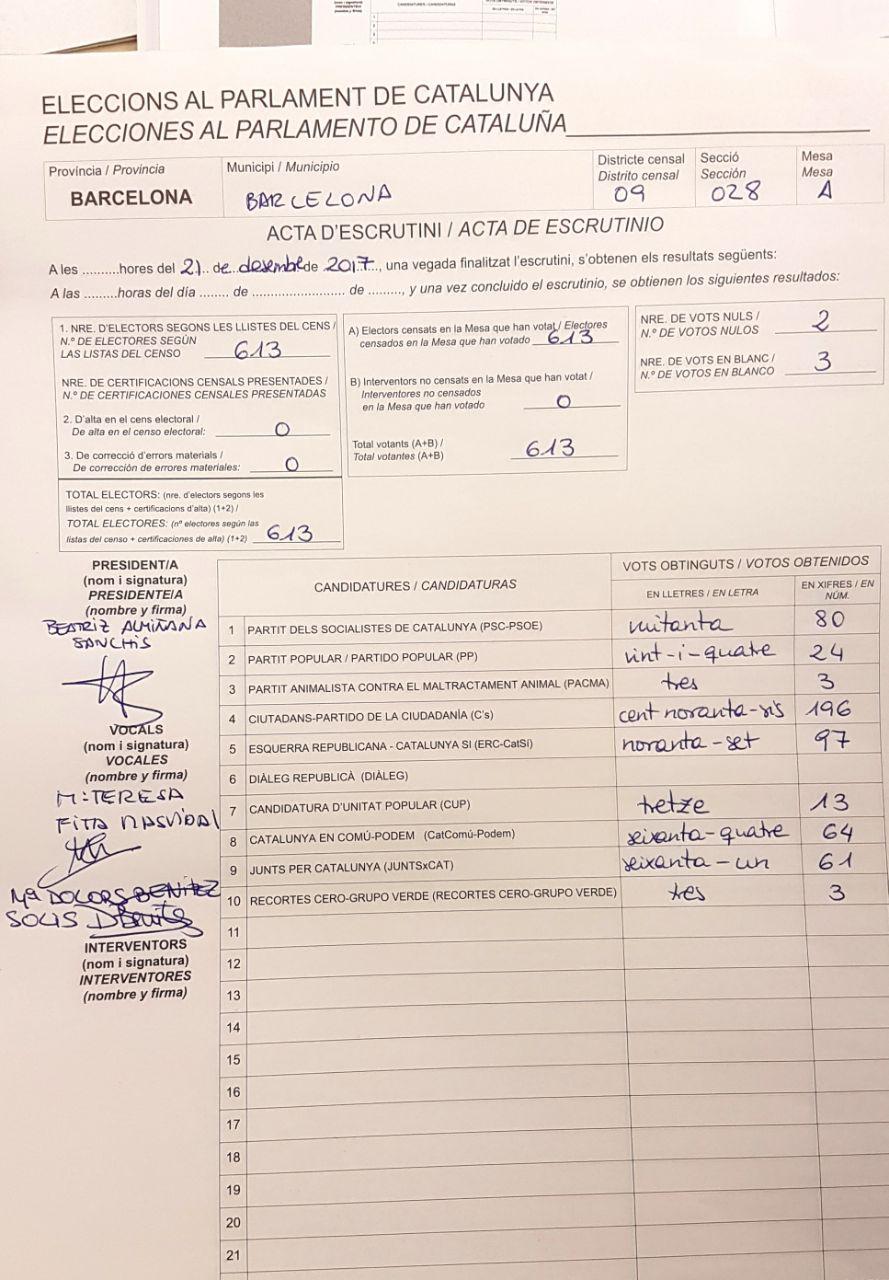 ELECCIONS AL PARLAMENT DE CATALUNYA
ELECCIONES AL PARLAMENTO DE CATALUÑA
Província / Provincia
BARCELONA
Municipi / Municipio
BARCELONA
Districte censal
Distrito censal
09
Secció
Sección
028
Mesa
Mesa
A
ACTA D'ESCRUTINI / ACTA DE ESCRUTINIO
A les .........hores del 21.. de..desembre de 2017.., una vegada finalitzat l'escrutini, s'obtenen els resultats següents:
A las .........horas del día ....... de ...................... de ........., y una vez concluido el escrutinio, se obtienen los siguientes resultados:
1. NRE. D'ELECTORS SEGONS LES LLISTES DEL CENS /
N.º DE ELECTORES SEGÚN
LAS LISTAS DEL CENSO 613
NRE. DE CERTIFICACIONS CENSALS PRESENTADES /
N.º DE CERTIFICACIONES CENSALES PRESENTADAS
2. D'alta en el cens electoral /
De alta en el censo electoral: 0
3. De correcció d'errors materials /
De corrección de errores materiales: 0
TOTAL ELECTORS: (nre. d'electors segons les
llistes del cens + certificacions d'alta) (1+2) /
TOTAL ELECTORES: (nº electores según las
listas del censo + certificaciones de alta) (1+2) 613
A) Electors censats en la Mesa que han votat / Electores
censados en la Mesa que han votado 613
B) Interventors no censats en la Mesa que han votat /
Interventores no censados
en la Mesa que han votado 0
Total votants (A+B) /
Total votantes (A+B) 613
NRE. DE VOTS NULS /
N.º DE VOTOS NULOS 2
NRE. DE VOTS EN BLANC /
N.º DE VOTOS EN BLANCO 3
PRESIDENT/A
(nom i signatura)
PRESIDENTE/A
(nombre y firma)
BEATRIZ ALMIÑANA
SANCHIS
VOCALS
(nom i signatura)
VOCALES
(nombre y firma)
Mª TERESA
FITA MASVIDAL
Mª DOLORS BENITEZ
SOLIS DBenitez
INTERVENTORS
(nom i signatura)
INTERVENTORES
(nombre y firma)
CANDIDATURES / CANDIDATURAS
VOTS OBTINGUTS / VOTOS OBTENIDOS
EN LLETRES / EN LETRA
EN XIFRES / EN
NÚM.
1 PARTIT DELS SOCIALISTES DE CATALUNYA (PSC-PSOE) vuitanta 80
2 PARTIT POPULAR / PARTIDO POPULAR (PP) vint-i-quatre 24
3 PARTIT ANIMALISTA CONTRA EL MALTRACTAMENT ANIMAL (PACMA) tres 3
4 CIUTADANS-PARTIDO DE LA CIUDADANÍA (C's) cent noranta-sis 196
5 ESQUERRA REPUBLICANA - CATALUNYA SI (ERC-CatSí) noranta-set 97
6 DIÀLEG REPUBLICÀ (DIÀLEG)
7 CANDIDATURA D'UNITAT POPULAR (CUP) tretze 13
8 CATALUNYA EN COMÚ-PODEM (CatComú-Podem) seixanta-quatre 64
9 JUNTS PER CATALUNYA (JUNTSxCAT) seixanta-un 61
10 RECORTES CERO-GRUPO VERDE (RECORTES CERO-GRUPO VERDE) tres 3
11
12
13
14
15
16
17
18
19
20
21